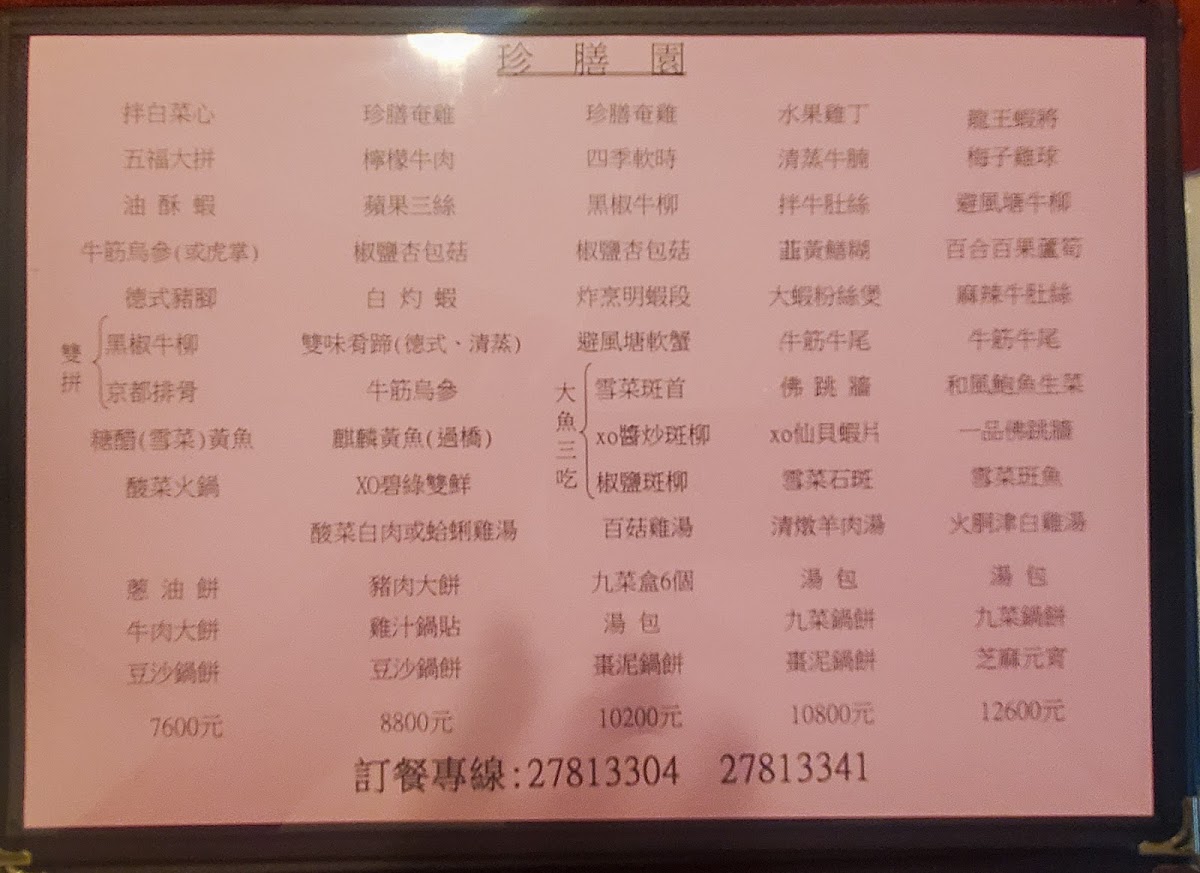 珍膳園
拌白菜心
五福大拼
油酥蝦
牛筋烏參(或虎掌)
德式豬腳
雙拼
黑椒牛柳
京都排骨
糖醋(雪菜)黃魚
酸菜火鍋
蔥油餅
牛肉大餅
豆沙鍋餅
7600元
珍膳奄雞
檸檬牛肉
蘋果三絲
椒鹽杏包菇
白灼蝦
雙味肴蹄(德式、清蒸)
牛筋烏參
麒麟黃魚(過橋)
XO碧綠雙鮮
酸菜白肉或蛤蜊雞湯
豬肉大餅
雞汁鍋貼
豆沙鍋餅
8800元
珍膳奄雞
四季軟時
黑椒牛柳
椒鹽杏包菇
炸烹明蝦段
避風塘軟蟹
大魚三吃
雪菜斑首
xo醬炒斑柳
椒鹽斑柳
百菇雞湯
九菜盒6個
湯包
棗泥鍋餅
10200元
水果雞丁
清蒸牛腩
拌牛肚絲
韮黃鱔糊
大蝦粉絲煲
牛筋牛尾
佛跳牆
xo仙貝蝦片
雪菜石斑
清燉羊肉湯
湯包
九菜鍋餅
棗泥鍋餅
10800元
龍王蝦將
梅子雞球
避風塘牛柳
百合百果蘆筍
麻辣牛肚絲
牛筋牛尾
和風鮑魚生菜
一品佛跳牆
雪菜斑魚
火胴津白雞湯
湯包
九菜鍋餅
芝麻元宵
12600元
訂餐專線:27813304 27813341